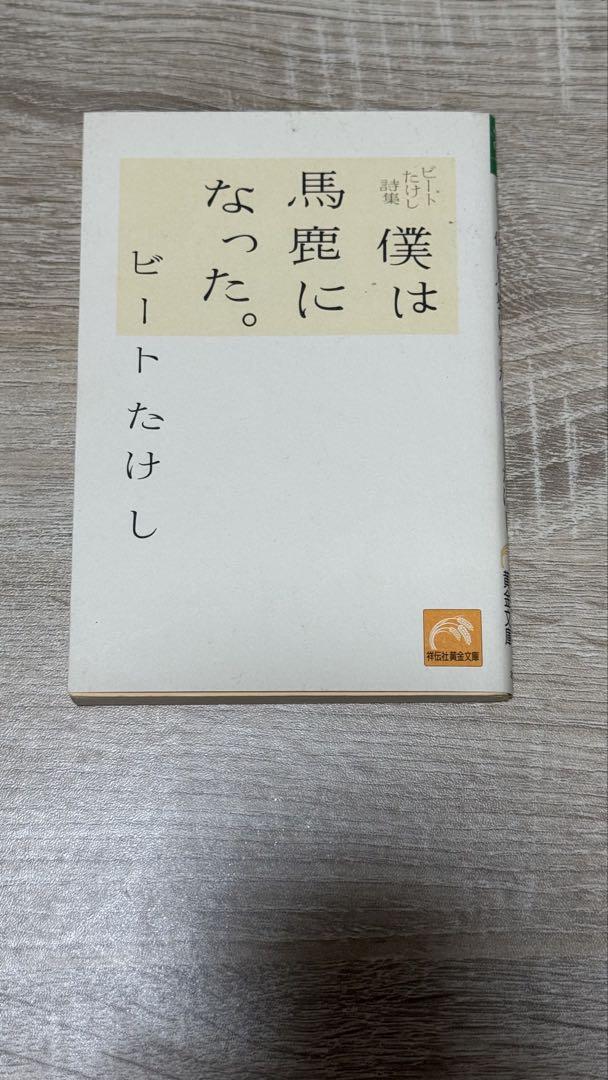 ビートたけし詩集
僕は
馬鹿に
なった。
ビートたけし
祥伝社黄金文庫
黄金文庫